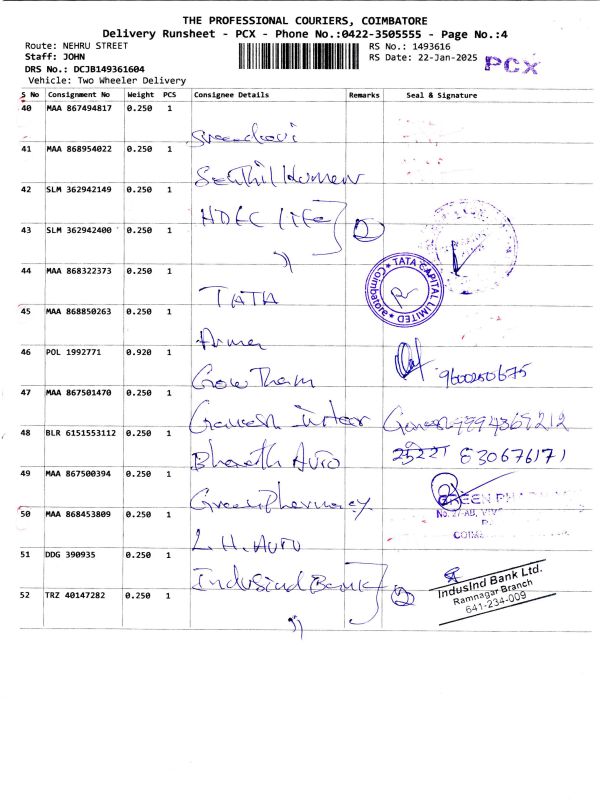 THE PROFESSIONAL COURIERS, COIMBATORE
Delivery Runsheet - PCX - Phone No.:0422-3505555 - Page No.:4
Route: NEHRU STREET
Staff: JOHN
DRS No.: DCJB149361604
Vehicle: Two Wheeler Delivery
RS No.: 1493616
RS Date: 22-Jan-2025
PCX
S No Consignment No Weight PCS Consignee Details Remarks Seal & Signature
40 MAA 867494817 0.250 1
41 MAA 868954022 0.250 1
Senthil Kumar
42 SLM 362942149 0.250 1
HDFC Life
43 SLM 362942400 0.250 1 2
"
44 MAA 868322373 0.250 1
TATA
TATA CAPITAL LIMITED
Coimbatore
45 MAA 868850263 0.250 1
46 POL 1992771 0.920 1
Gowtham 9600250675
47 MAA 867501470 0.250 1
Ganesh
Ganesh
48 BLR 6151553112 0.250 1
Bharath Auto
49 MAA 867500394 0.250 1
Green Pharmacy
GREEN
50 MAA 868453809 0.250 1
L.H. Auto
51 DDG 390935 0.250 1
IndusInd Bank
IndusInd Bank Ltd.
Ramnagar Branch
641-234-009
52 TRZ 40147282 0.250 1 2
"